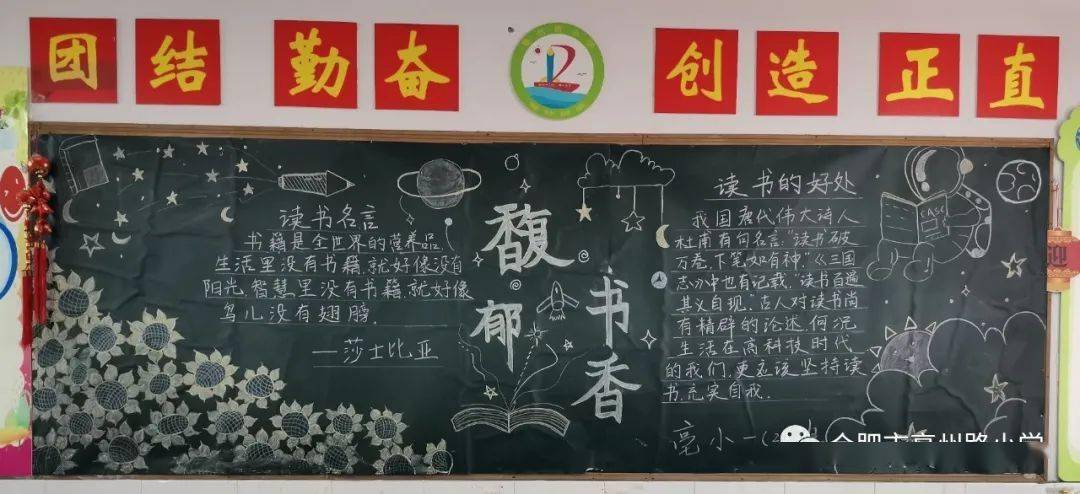 团结 勤奋 创造 正直
读书名言
书籍是全世界的营养品,
生活里没有书籍,就好像没有
阳光,智慧里没有书籍,就好像
鸟儿没有翅膀.
—莎士比亚
馥郁
书香
读书的好处
我国唐代伟大诗人
杜甫有句名言:“读书破
万卷,下笔如有神”《三国
志》中也有记载,“读书百遍
其义自现”.古人对读书尚
有精辟的论述,何况
生活在高科技时代
的我们,更应该坚持读
书,充实自我.
CASC
亳小一
合肥市亳州路小学